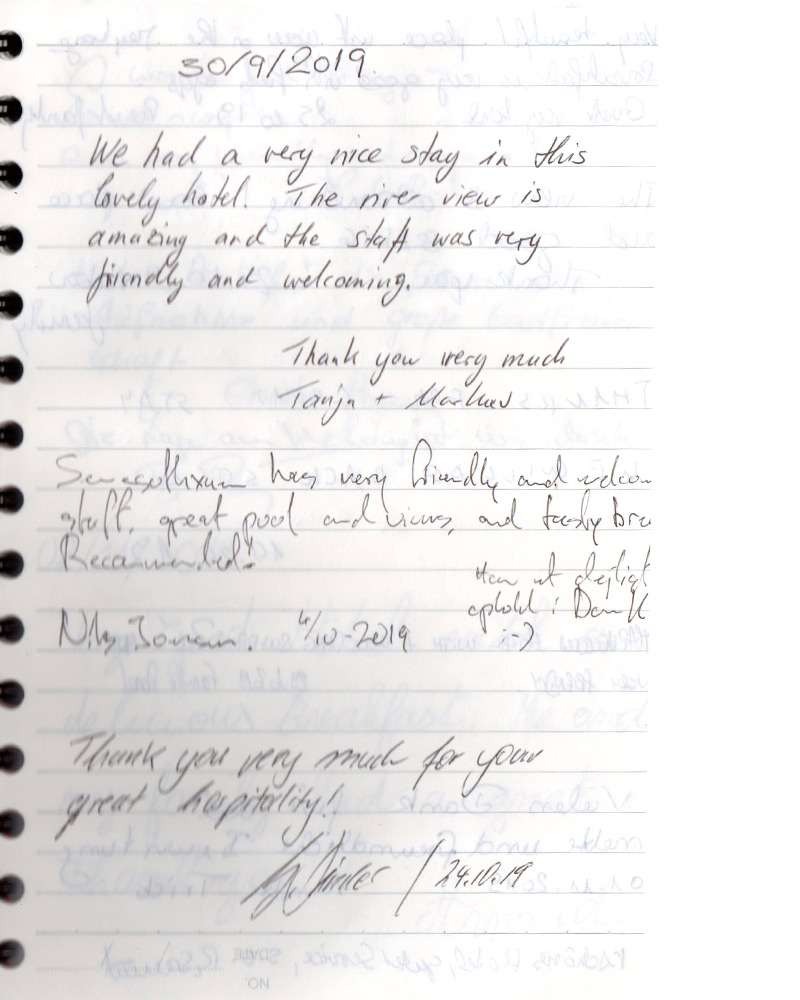 30/9/2019.
We had a very nice stay in this
lovely hotel. The river view is
amazing and the staff was very
friendly and welcoming.
Thank you very much
Tanja + Markus
has very friendly and welcom
staff, great pool and views, and tasty brea
Recommended!
Hav et dejligt
ophold i
:-)
4/10-2019
Thank you very much for your
great hospitality!
/ 24.10.19